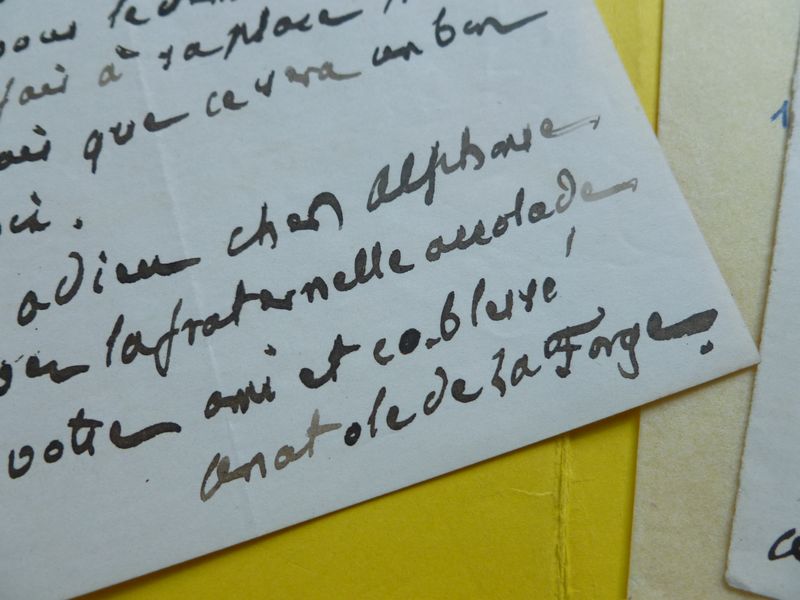 pour le
fais à sa place
que ce sera un bon
adieu cher Alphonse
la fraternelle accolade
votre ami et co-blessé
Anatole de La Forge.